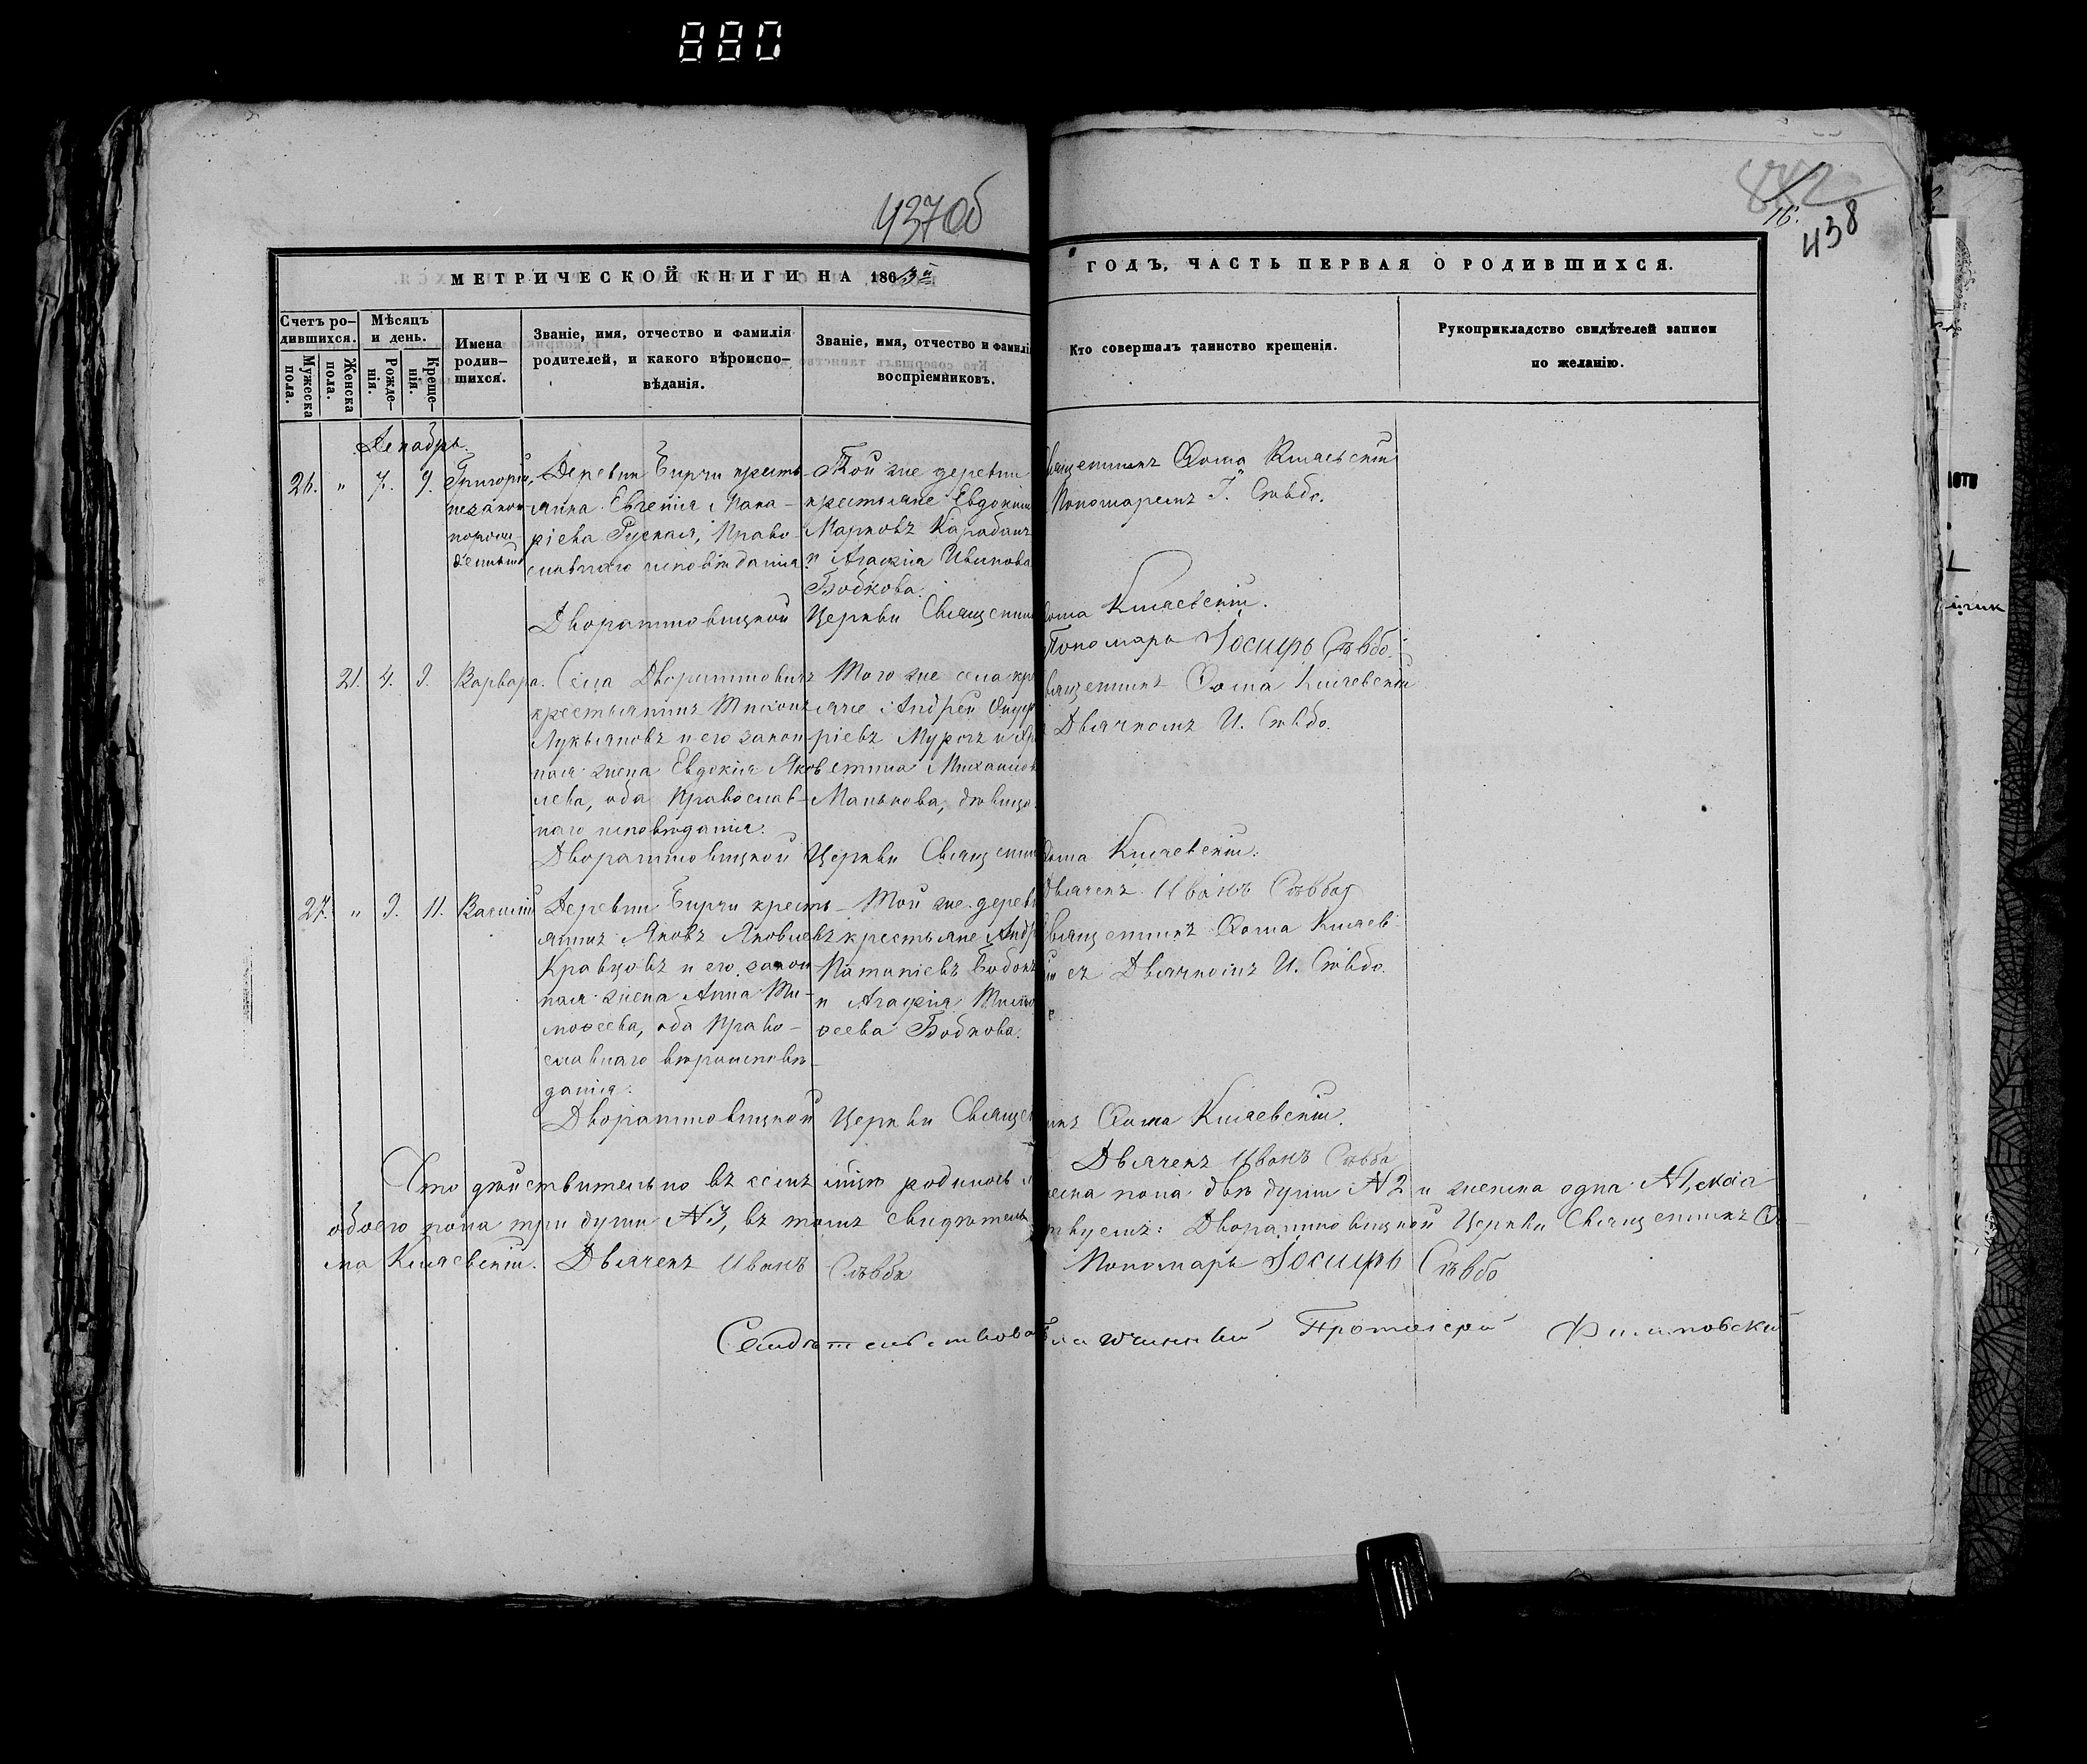 880
437об
16.
438
МЕТРИЧЕСКОЙ КНИГИ НА 1863й
ГОДЪ, ЧАСТЬ ПЕРВАЯ О РОДИВШИХСЯ.
Счетъ ро-
дившихся.
Мужеска
пола.
Женска
пола.
Мѣсяцъ
и день.
Рожде-
нія.
Креще-
нія.
Имена
родив-
шихся.
Званіе, имя, отчество и фамилія
родителей, и какого вѣроиспо-
вѣданія.
Званіе, имя, отчество и фамилі
воспріемниковъ.
Кто совершалъ таинство крещенія.
Рукоприкладство свидѣтелей записи
по желанію.
Декабрь.
26. " 7. 9. Григорій,
незакон-
норож-
денный
Деревни Бирчи кресть-
янка Евгенія Мака-
ріева Руцкая, Право-
славнаго исповѣданія
Той же деревни
крестьяне Евдоким
Марковъ Карабанъ
и Агафія Иванова
Бобкова.
священникъ Ѳома Киляевскій
Пономаремъ І. Сѣвбо.
Дворатовицкой Церкви Священни Ѳома Киляевскій.
Пономарь Іосифъ Сѣвбо.
21. 4. 9. Варвара.
Села
крестьянинъ Тихонъ
Лукьяновъ и его закон-
ная жена Евдокія Яков
лева, оба Православ-
наго исповѣданія.
Того же села кре
яне Андрей Онуф
ріевъ Мурогъ и Хр
стина Михайлов
Малькова, дѣвица.
священникъ Ѳома Киляевскій
Дьячкомъ И. Сѣвбо.
Дворатовицкой Церкви Священни Ѳома Киляевскій.
Дьячекъ Иванъ Сѣвбо
27. " 9. 11. Василій
Деревни Бирчи кресть-
янинъ Яковъ Яковлевъ
Кравцовъ и его закон-
ная жена Анна Ти-
моѳеева, оба Право-
славнаго вѣроисповѣ-
данія.
Той же дерев
крестьяне Андр
Бобокъ
и Агафія Тимо
ѳеева Бобкова.
священникъ Ѳома Киляев
ій съ Дьячкомъ И. Сѣвбо.
Дворатовицкой Церкви Священ никъ Ѳома Киляевскій.
Дьячекъ Иванъ Сѣвбо
Что дѣйствительно въ семъ родилось м ужеска пола двѣ души №2 и женска одна №1,
обоего пола три души №3, въ томъ свидѣтель ствуемъ: Дворатовицкой Церкви Священникъ Ѳо-
ма Киляевскій. Дьячекъ Иванъ Сѣвбо Пономарь Іосифъ Сѣвбо
Благочинный Протоіерей